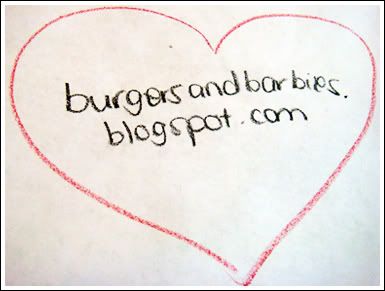 burgersandbarbies.
blogspot.com